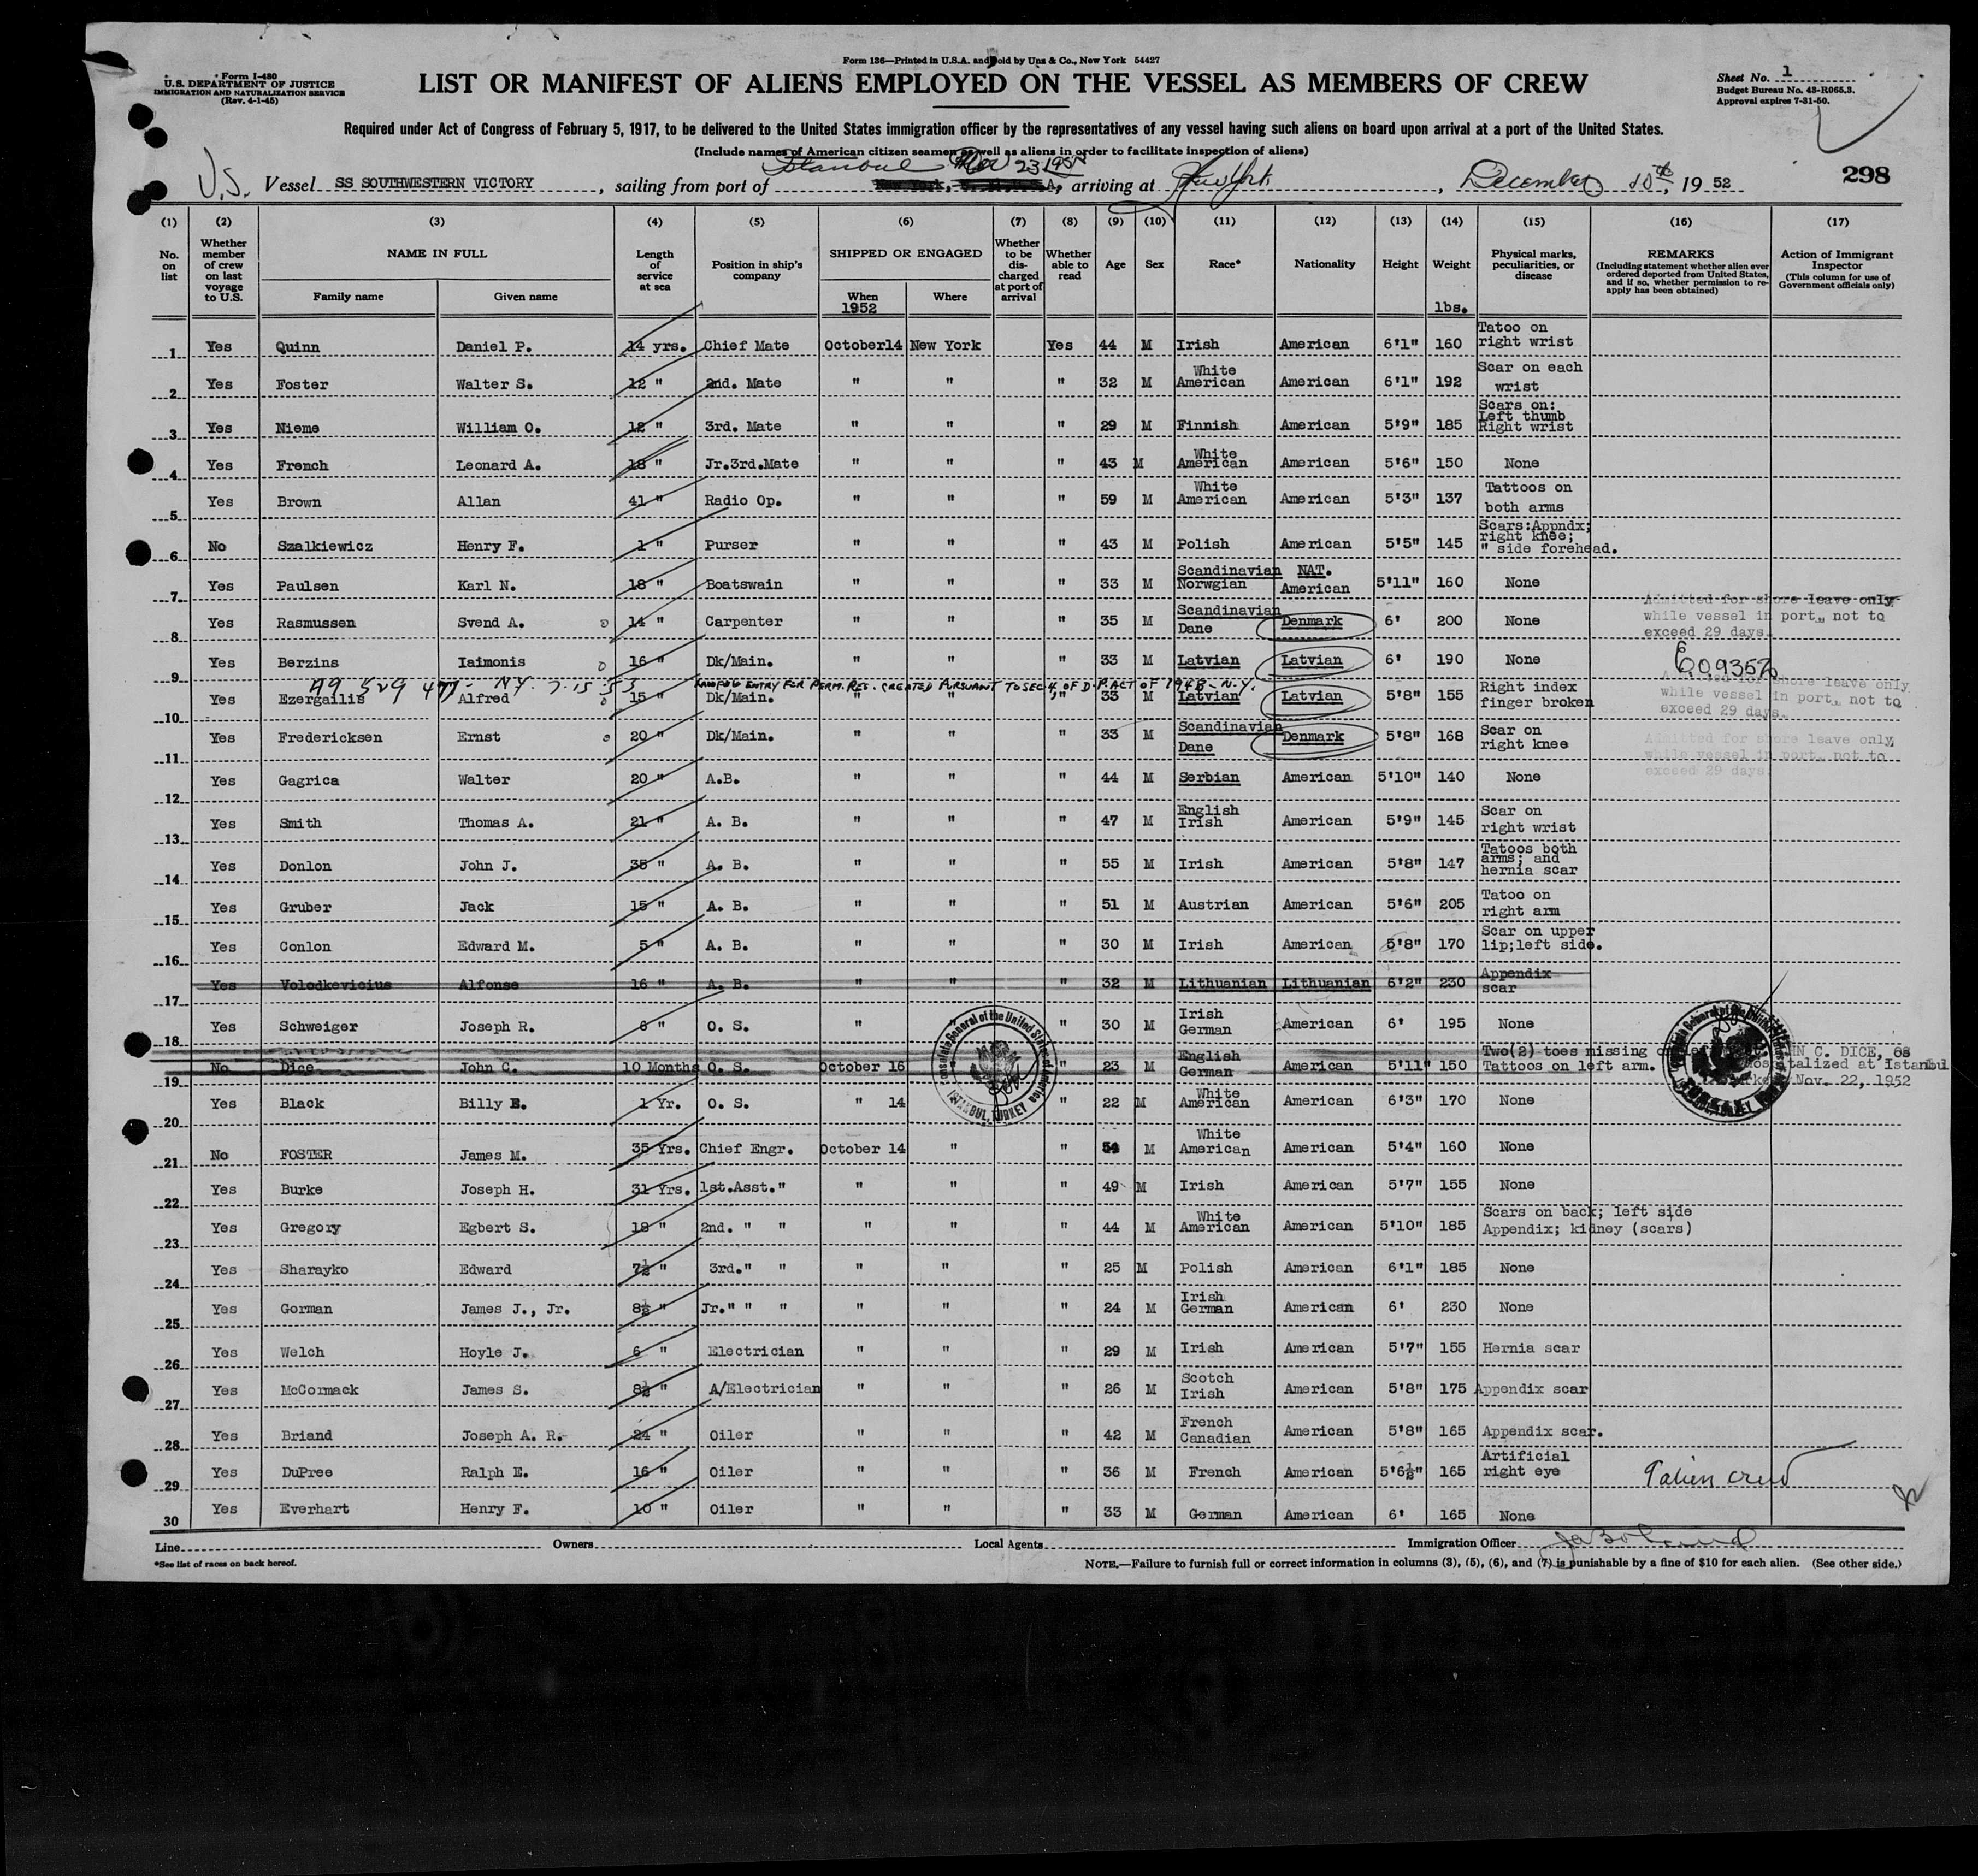 Form I-480
U.S. DEPARTMENT OF JUSTICE
IMMIGRATION AND NATURALIZATION SERVICE
(Rev. 4-1-45)
Form 136—Printed in U.S.A. and Sold by Unz & Co., New York 54427
LIST OR MANIFEST OF ALIENS EMPLOYED ON THE VESSEL AS MEMBERS OF CREW
Sheet No. 1
Budget Bureau No. 43-R065.3.
Approval expires 7-31-50.
Required under Act of Congress of February 5, 1917, to be delivered to the United States immigration officer by the representatives of any vessel having such aliens on board upon arrival at a port of the United States.
(Include names of American citizen seamen as well as aliens in order to facilitate inspection of aliens)
Istanbul Nov 23 1952
U.S. Vessel SS SOUTHWESTERN VICTORY, sailing from port of New York, U.S.A., arriving at New York, December 10th, 19 52
298
(1) (2) (3) (4) (5) (6) (7) (8) (9) (10) (11) (12) (13) (14) (15) (16) (17)
No. on list | Whether member of crew on last voyage to U.S. | NAME IN FULL Family name Given name | Length of service at sea | Position in ship's company | SHIPPED OR ENGAGED When 1952 Where | Whether to be discharged at port of arrival | Whether able to read | Age | Sex | Race* | Nationality | Height | Weight lbs. | Physical marks, peculiarities, or disease | REMARKS (Including statement whether alien ever ordered deported from United States, and if so, whether permission to reapply has been obtained) | Action of Immigrant Inspector (This column for use of Government officials only)
1 Yes Quinn Daniel P. 14 yrs. Chief Mate October14 New York Yes 44 M Irish American 6'1" 160 Tatoo on right wrist
2 Yes Foster Walter S. 12 " 2nd. Mate " " " 32 M White American American 6'1" 192 Scar on each wrist
3 Yes Nieme William O. 12 " 3rd. Mate " " " 29 M Finnish American 5'9" 185 Scars on: Left thumb Right wrist
4 Yes French Leonard A. 18 " Jr.3rd.Mate " " " 43 M White American American 5'6" 150 None
5 Yes Brown Allan 41 " Radio Op. " " " 59 M White American American 5'3" 137 Tattoos on both arms
6 No Szalkiewicz Henry F. 1 " Purser " " " 43 M Polish American 5'5" 145 Scars:Appndx; right knee; " side forehead.
7 Yes Paulsen Karl N. 18 " Boatswain " " " 33 M Scandinavian Norwgian NAT. American 5'11" 160 None
8 Yes Rasmussen Svend A. 14 " Carpenter " " " 35 M Scandinavian Dane Denmark 6' 200 None Admitted for shore leave only while vessel in port, not to exceed 29 days.
9 Yes Berzins Iaimonis 16 " Dk/Main. " " " 33 M Latvian Latvian 6' 190 None
A9 529 477 - N.Y. 7-15-53 LAWFUL ENTRY FOR PERM. RES. CREATED PURSUANT TO SEC 4 OF D.P. ACT OF 1948 - N.Y.
10 Yes Ezergailis Alfred 15 " Dk/Main. " " " 33 M Latvian Latvian 5'8" 155 Right index finger broken Admitted for shore leave only while vessel in port, not to exceed 29 days.
11 Yes Fredericksen Ernst 20 " Dk/Main. " " " 33 M Scandinavian Dane Denmark 5'8" 168 Scar on right knee Admitted for shore leave only while vessel in port, not to exceed 29 days.
12 Yes Gagrica Walter 20 " A.B. " " " 44 M Serbian American 5'10" 140 None
13 Yes Smith Thomas A. 21 " A. B. " " " 47 M English Irish American 5'9" 145 Scar on right wrist
14 Yes Donlon John J. 35 " A. B. " " " 55 M Irish American 5'8" 147 Tatoos both arms; and hernia scar
15 Yes Gruber Jack 15 " A. B. " " " 51 M Austrian American 5'6" 205 Tatoo on right arm
16 Yes Conlon Edward M. 5 " A. B. " " " 30 M Irish American 5'8" 170 Scar on upper lip;left side.
17 Yes Volodkevicius Alfonse 16 " A. B. " " " 32 M Lithuanian Lithuanian 6'2" 230 Appendix scar
18 Yes Schweiger Joseph R. 6 " O. S. " " 30 M Irish German American 6' 195 None
19 No Dice John C. 10 Months O. S. October 16 " " 23 M English German American 5'11" 150 Two(2) toes missing Tattoos on left arm. C. DICE, OS hospitalized at Istanbul Nov. 22, 1952
Consulate General of the United States of America ISTANBUL, TURKEY
20 Yes Black Billy E. 1 Yr. O. S. " 14 " 22 M White American American 6'3" 170 None
21 No FOSTER James M. 35 Yrs. Chief Engr. October 14 " " 54 M White American American 5'4" 160 None
22 Yes Burke Joseph H. 31 Yrs. 1st.Asst." " " " 49 M Irish American 5'7" 155 None
23 Yes Gregory Egbert S. 18 " 2nd. " " " " " 44 M White American American 5'10" 185 Scars on back; left side Appendix; kidney (scars)
24 Yes Sharayko Edward 7½ " 3rd." " " " " 25 M Polish American 6'1" 185 None
25 Yes Gorman James J., Jr. 8½ " Jr." " " " " " 24 M Irish German American 6' 230 None
26 Yes Welch Hoyle J. 6 " Electrician " " " 29 M Irish American 5'7" 155 Hernia scar
27 Yes McCormack James S. 8½ " A/Electrician " " " 26 M Scotch Irish American 5'8" 175 Appendix scar
28 Yes Briand Joseph A. R. 24 " Oiler " " " 42 M French Canadian American 5'8" 165 Appendix scar.
29 Yes DuPree Ralph E. 16 " Oiler " " " 36 M French American 5'6½" 165 Artificial right eye
30 Yes Everhart Henry F. 10 " Oiler " " " 33 M German American 6' 165 None
Line Owners Local Agents Immigration Officer
*See list of races on back hereof.
NOTE.—Failure to furnish full or correct information in columns (3), (5), (6), and (7) is punishable by a fine of $10 for each alien. (See other side.)